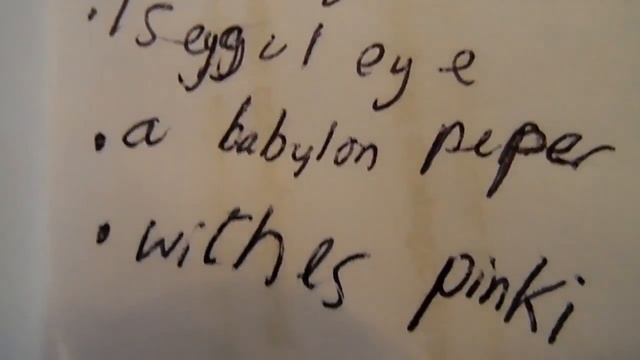 · 1 seggul eye
· a babylon peper
· withes pinki